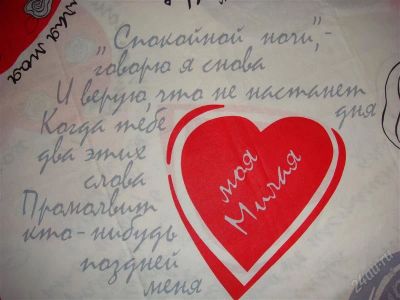 „Спокойной ночи",-
говорю я снова
И верую, что не настанет
дня
Когда тебе
два этих
слова
Промолвит
кто-нибудь
поздней
меня
моя
Милая
моя